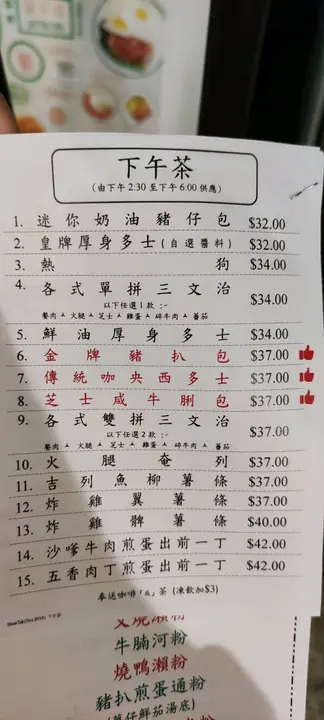 下午茶
(由下午 2:30 至下午 6:00 供應)
1. 迷你奶油豬仔包 $32.00
2. 皇牌厚身多士(自選醬料) $32.00
3. 熱狗 $34.00
4. 各式單拼三文治 $34.00
以下任選1款:-
餐肉 ▲ 火腿 ▲ 芝士 ▲ 雞蛋 ▲ 碎牛肉 ▲ 蕃茄
5. 鮮油厚身多士 $34.00
6. 金牌豬扒包 $37.00
7. 傳統咖央西多士 $37.00
8. 芝士咸牛脷包 $37.00
9. 各式雙拼三文治 $37.00
以下任選2款:-
餐肉 ▲ 火腿 ▲ 芝士 ▲ 雞蛋 ▲ 碎牛肉 ▲ 蕃茄
10. 火腿奄列 $37.00
11. 吉列魚柳薯條 $37.00
12. 炸雞翼薯條 $37.00
13. 炸雞髀薯條 $40.00
14. 沙嗲牛肉煎蛋出前一丁 $42.00
15. 五香肉丁煎蛋出前一丁 $42.00
奉送咖啡「或」茶 (凍飲加$3)
叉燒瀨粉
牛腩河粉
燒鴨瀨粉
豬扒煎蛋通粉
(薯仔鮮茄湯底)